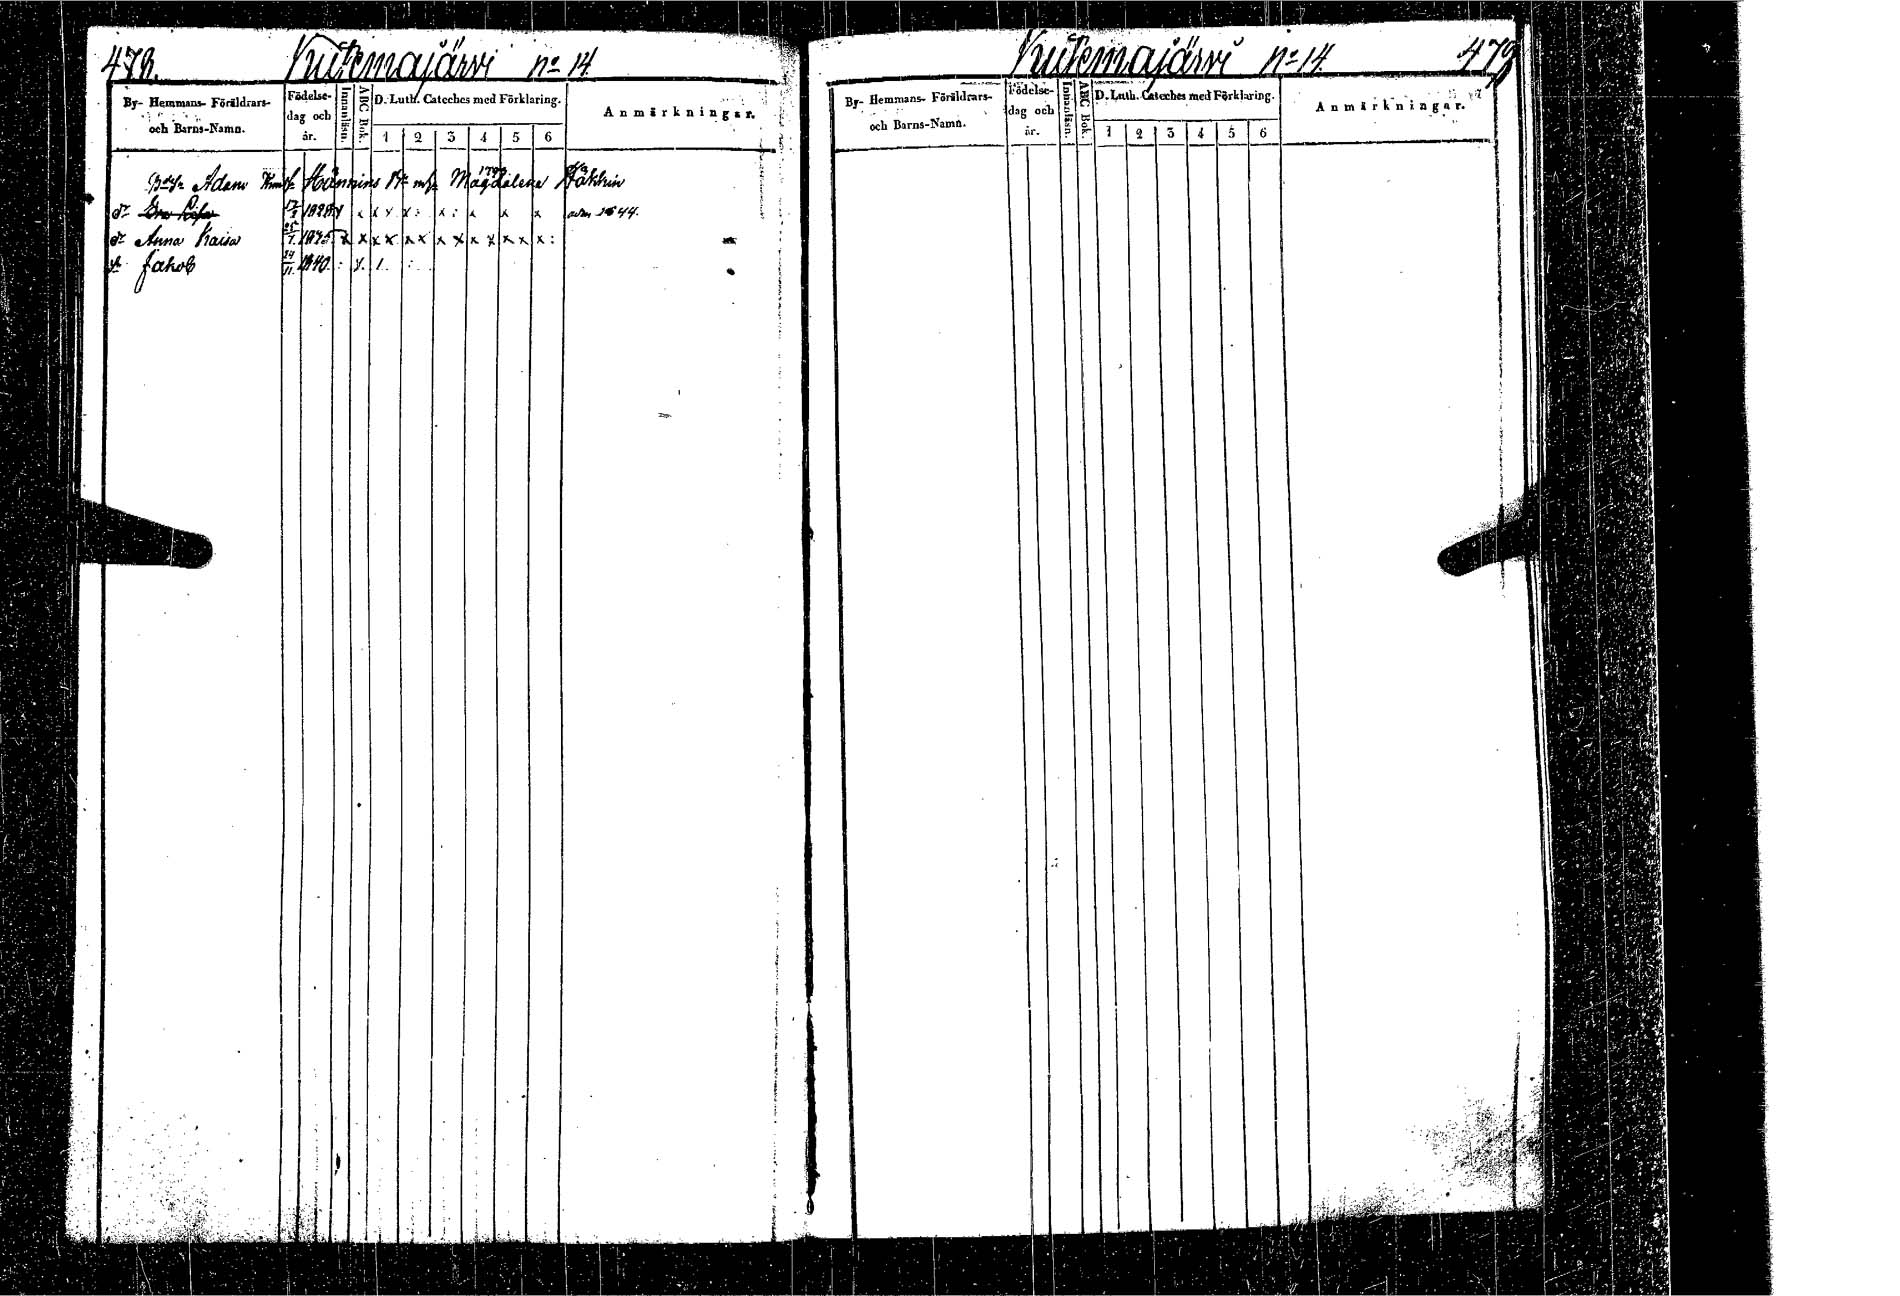 478. Kutemajärvi no 14
By- Hemmans- Föräldrars- och Barns-Namn.
Födelse- dag och år.
Innanläsn.
ABC Bok.
D. Luth. Cateches med Förklaring.
1 2 3 4 5 6
Anmärkningar.
Adam Hänninens mh Magdalena
dr 1828 x x x x x : x : x x x adm 1844.
dr Anna Kaisa 1835 x x x x x x x x x x x x x :
sn Jakob 24/11 1840 :
Kutemajärvi no 14. 479
By- Hemmans- Föräldrars- och Barns-Namn.
Födelse- dag och år.
Innanläsn.
ABC Bok.
D. Luth. Cateches med Förklaring.
1 2 3 4 5 6
Anmärkningar.